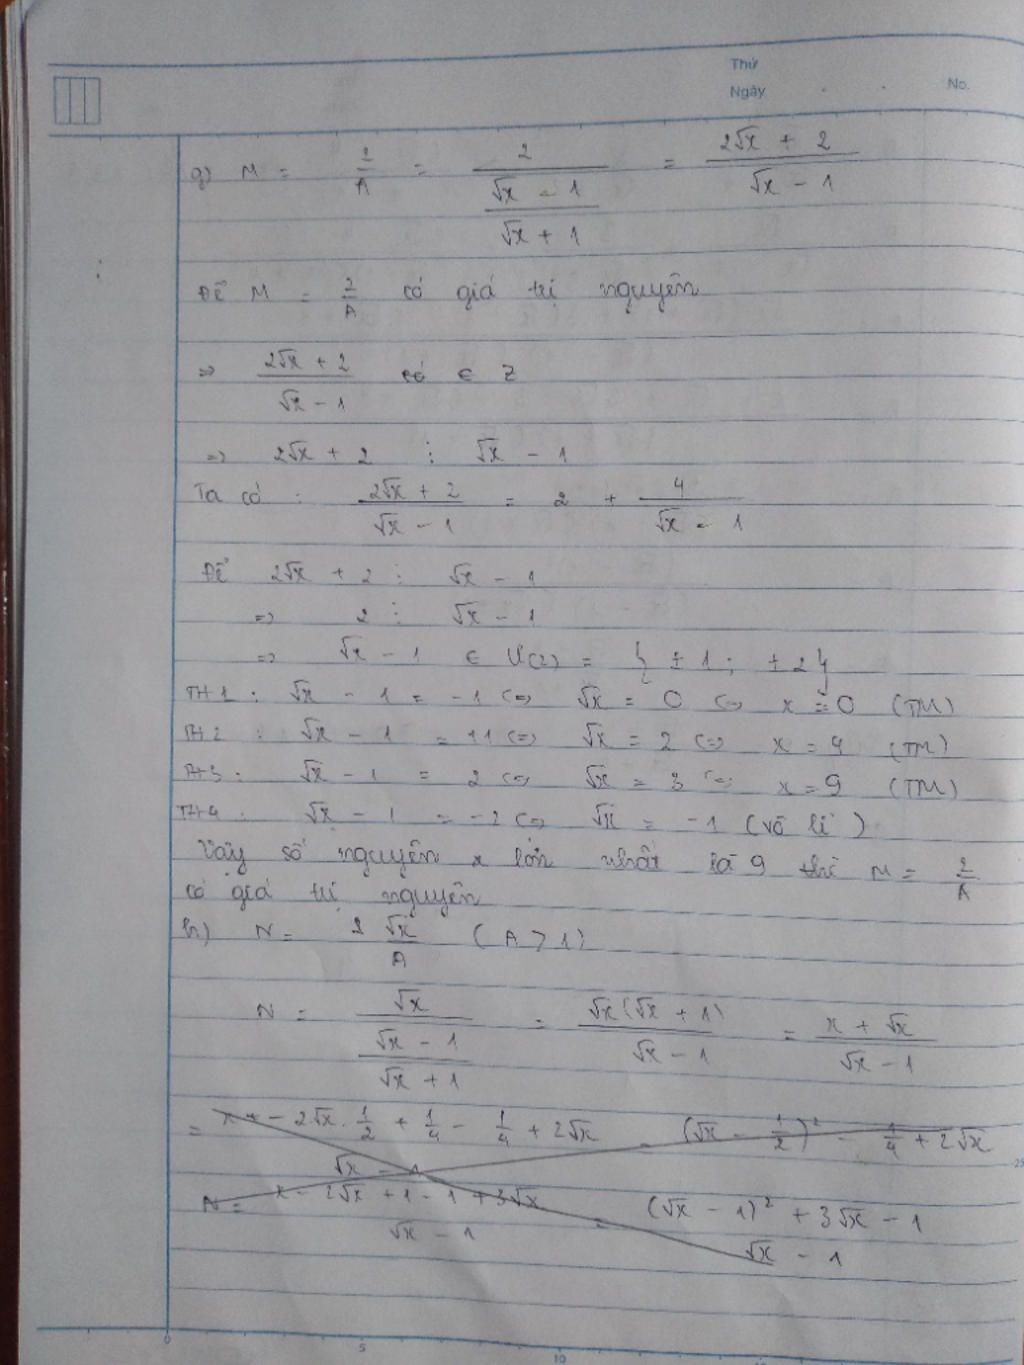 Thứ
Ngày
No.
g) M = 2/A = 2/((√x - 1)/(√x + 1)) = (2√x + 2)/(√x - 1)
Để M = 2/A có giá trị nguyên
=> (2√x + 2)/(√x - 1) có ∈ Z
=> 2√x + 2 ⋮ √x - 1
Ta có : (2√x + 2)/(√x - 1) = 2 + 4/(√x - 1)
Để 2√x + 2 ⋮ √x - 1
=> 2 ⋮ √x - 1
=> √x - 1 ∈ Ư(2) = { ± 1 ; ± 2 }
TH1 : √x - 1 = -1 <=> √x = 0 <=> x = 0 (TM)
TH2 : √x - 1 = +1 <=> √x = 2 <=> x = 4 (TM)
TH3 : √x - 1 = 2 <=> √x = 3 <=> x = 9 (TM)
TH4 : √x - 1 = -2 <=> √x = -1 (vô lí)
Vậy số nguyên x lớn nhất là 9 thì M = 2/A
có giá trị nguyên
h) N = √x/A (A > 1)
N = √x/((√x - 1)/(√x + 1)) = √x(√x + 1)/(√x - 1) = (x + √x)/(√x - 1)
= (x - 2√x . 1/2 + 1/4 - 1/4 + 2√x)/(√x - 1) = (√x - 1/2)² - 1/4 + 2√x
N = (x - 2√x + 1 - 1 + 3√x)/(√x - 1) = ((√x - 1)² + 3√x - 1)/(√x - 1)
0 5 10